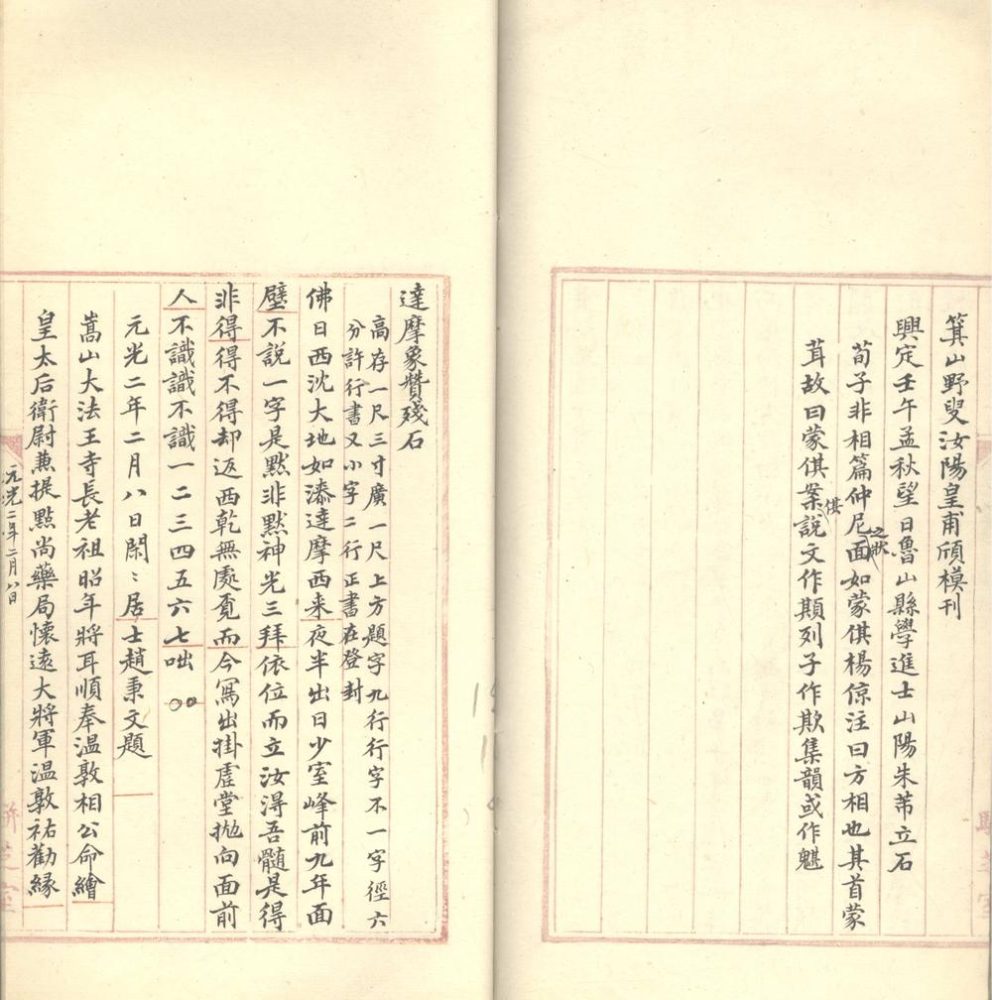 箕山野叟汝陽皇甫頎模刊
興定壬午孟秋望日魯山縣學進士山陽朱芾立石
荀子非相篇仲尼之狀面如蒙倛楊倞注曰方相也其首蒙
茸故曰蒙倛案倛說文作䫏列子作欺集韻或作魌
達摩象贊殘石
高存一尺三寸廣一尺上方題字九行行字不一字徑六
分許行書又小字二行正書在登封
佛日西沈大地如漆達摩西来夜半出日少室峰前九年面
壁不說一字是黙非黙神光三拜依位而立汝淂吾髄是得
非得得不得却返西乾無處覔而今冩出掛虛堂抛向面前
人不識識不識一二三四五六七咄
元光二年二月八日閑〻居士趙秉文題
嵩山大法王寺長老祖昭年將耳順奉温敦相公命繪
皇太后衛尉兼提點尚藥局懷遠大將軍温敦祐勸緣
元光二年二月八日